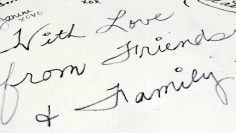 xoxo
xox
With Love
from Friends
& Family